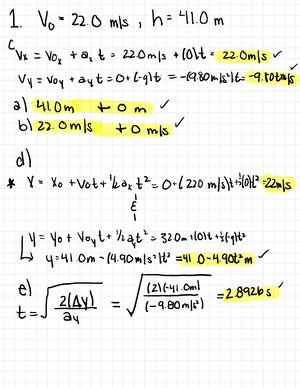 1. V₀ = 22.0 m/s , h = 41.0 m
c
Vx = V0x + axt = 22.0 m/s + (0)t = 22.0 m/s ✓
Vy = Voy + ayt = 0 + (-g)t = -(9.80 m/s²)t = -9.80t m/s
a) 41.0 m + 0 m ✓
b) 22.0 m/s + 0 m/s ✓
d)
* X = X0 + V0t + ½axt² = 0 + (22.0 m/s)t + ½(0)t² = 22 m/s ✓
&
y = y0 + Voyt + ½ayt² = 32.0m + (0)t + ½(-g)t²
↳ y = 41.0m - (4.90 m/s²)t² = 41.0 - 4.90t² m ✓
e)
t = √(2(Δy) / ay) = √((2)(-41.0m) / (-9.80 m/s²)) = 2.8926 s ✓